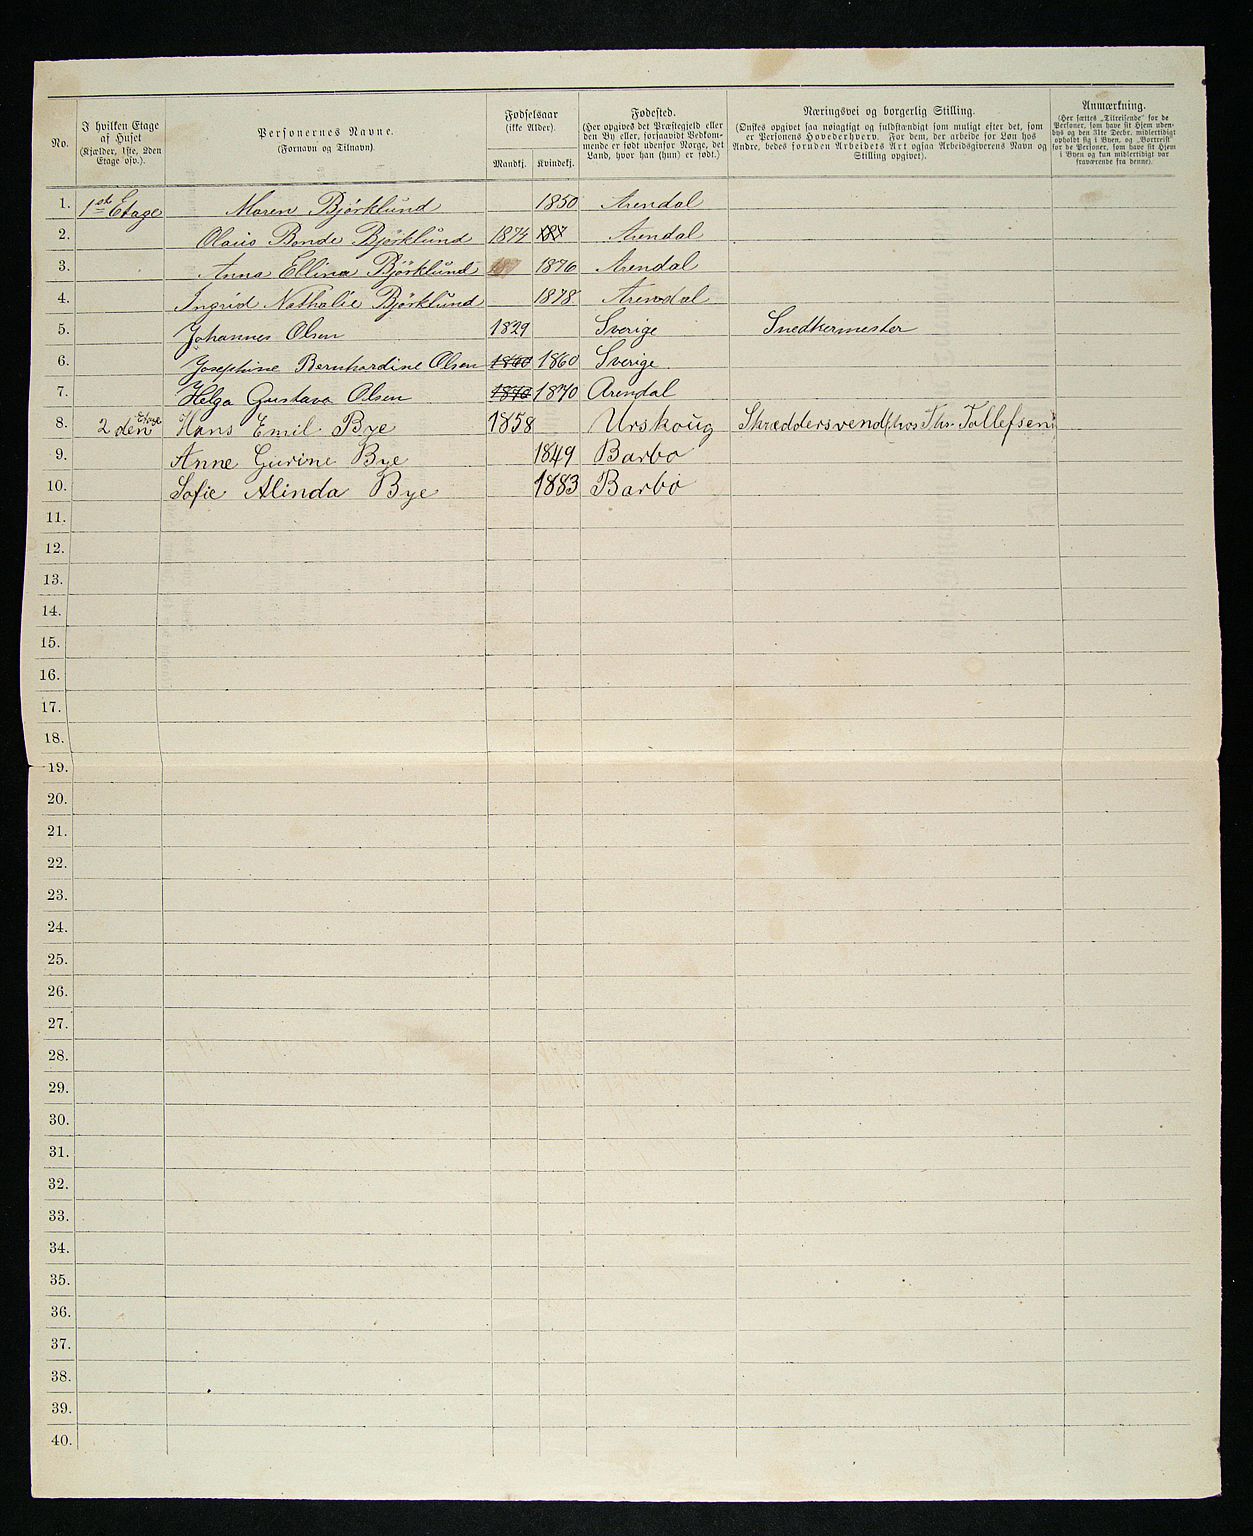 No.
I hvilken Etage
af Huset
(Kjælder, 1ste, 2den
Etage osv.).
Personernes Navne.
(Fornavn og Tilnavn).
Fødselsaar
(ikke Alder).
Mandkj. Kvindekj.
Fødested.
(Her opgives det Præstegjeld eller
den By eller, forsaavidt Vedkom-
mende er født udenfor Norge, det
Land, hvor han (hun) er født.)
Næringsvei og borgerlig Stilling.
(Ønskes opgivet saa nøiagtigt og fuldstændigt som muligt efter det, som
er Personens Hovederhverv. For dem, der arbeide for Løn hos
Andre, bedes foruden Arbeidets Art ogsaa Arbeidsgiverens Navn og
Stilling opgivet).
Anmærkning.
(Her sættes „Tilreisende“ for de
Personer, som have sit Hjem uden-
bys og den 31te Decbr. midlertidigt
opholdt sig i Byen, og „Bortreist“
for de Personer, som have sit Hjem
i Byen og kun midlertidigt var
fraværende fra denne).
1. 1ste Etage Maren Björklund 1850 Arendal
2. Olaus Bonde Björklund 1874 187 Arendal
3. Anna Ellina Björklund 187 1876 Arendal
4. Ingrid Nathalie Björklund 1878 Arendal
5. Johannes Olsen 1829 Sverige Snedkermester
6. Josephine Bernhardine Olsen 1860 1860 Sverige
7. Helga Gustava Olsen 1870 1870 Arendal
8. 2 den Etage Hans Emil Bye 1858 Urskoug Skræddersvend (hos Thr. Tollefsen)
9. Anne Gurine Bye 1849 Barbo
10. Sofie Alinda Bye 1883 Barbo
11.
12.
13.
14.
15.
16.
17.
18.
19.
20.
21.
22.
23.
24.
25.
26.
27.
28.
29.
30.
31.
32.
33.
34.
35.
36.
37.
38.
39.
40.